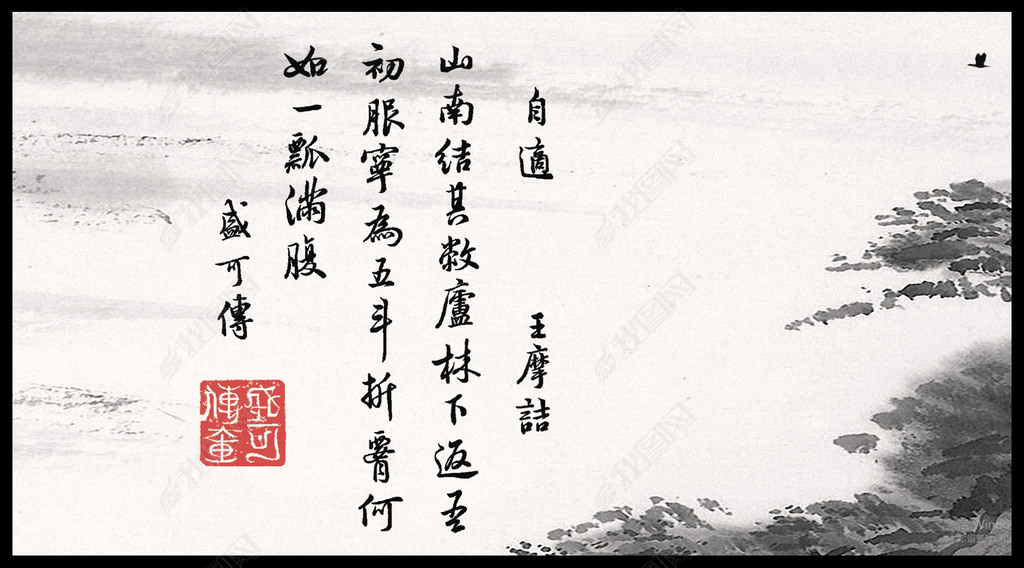 自適 王摩詰
山南結其敝廬林下返吾
初服寧為五斗折腰何
如一瓢滿腹
盛可傳
盛可傳